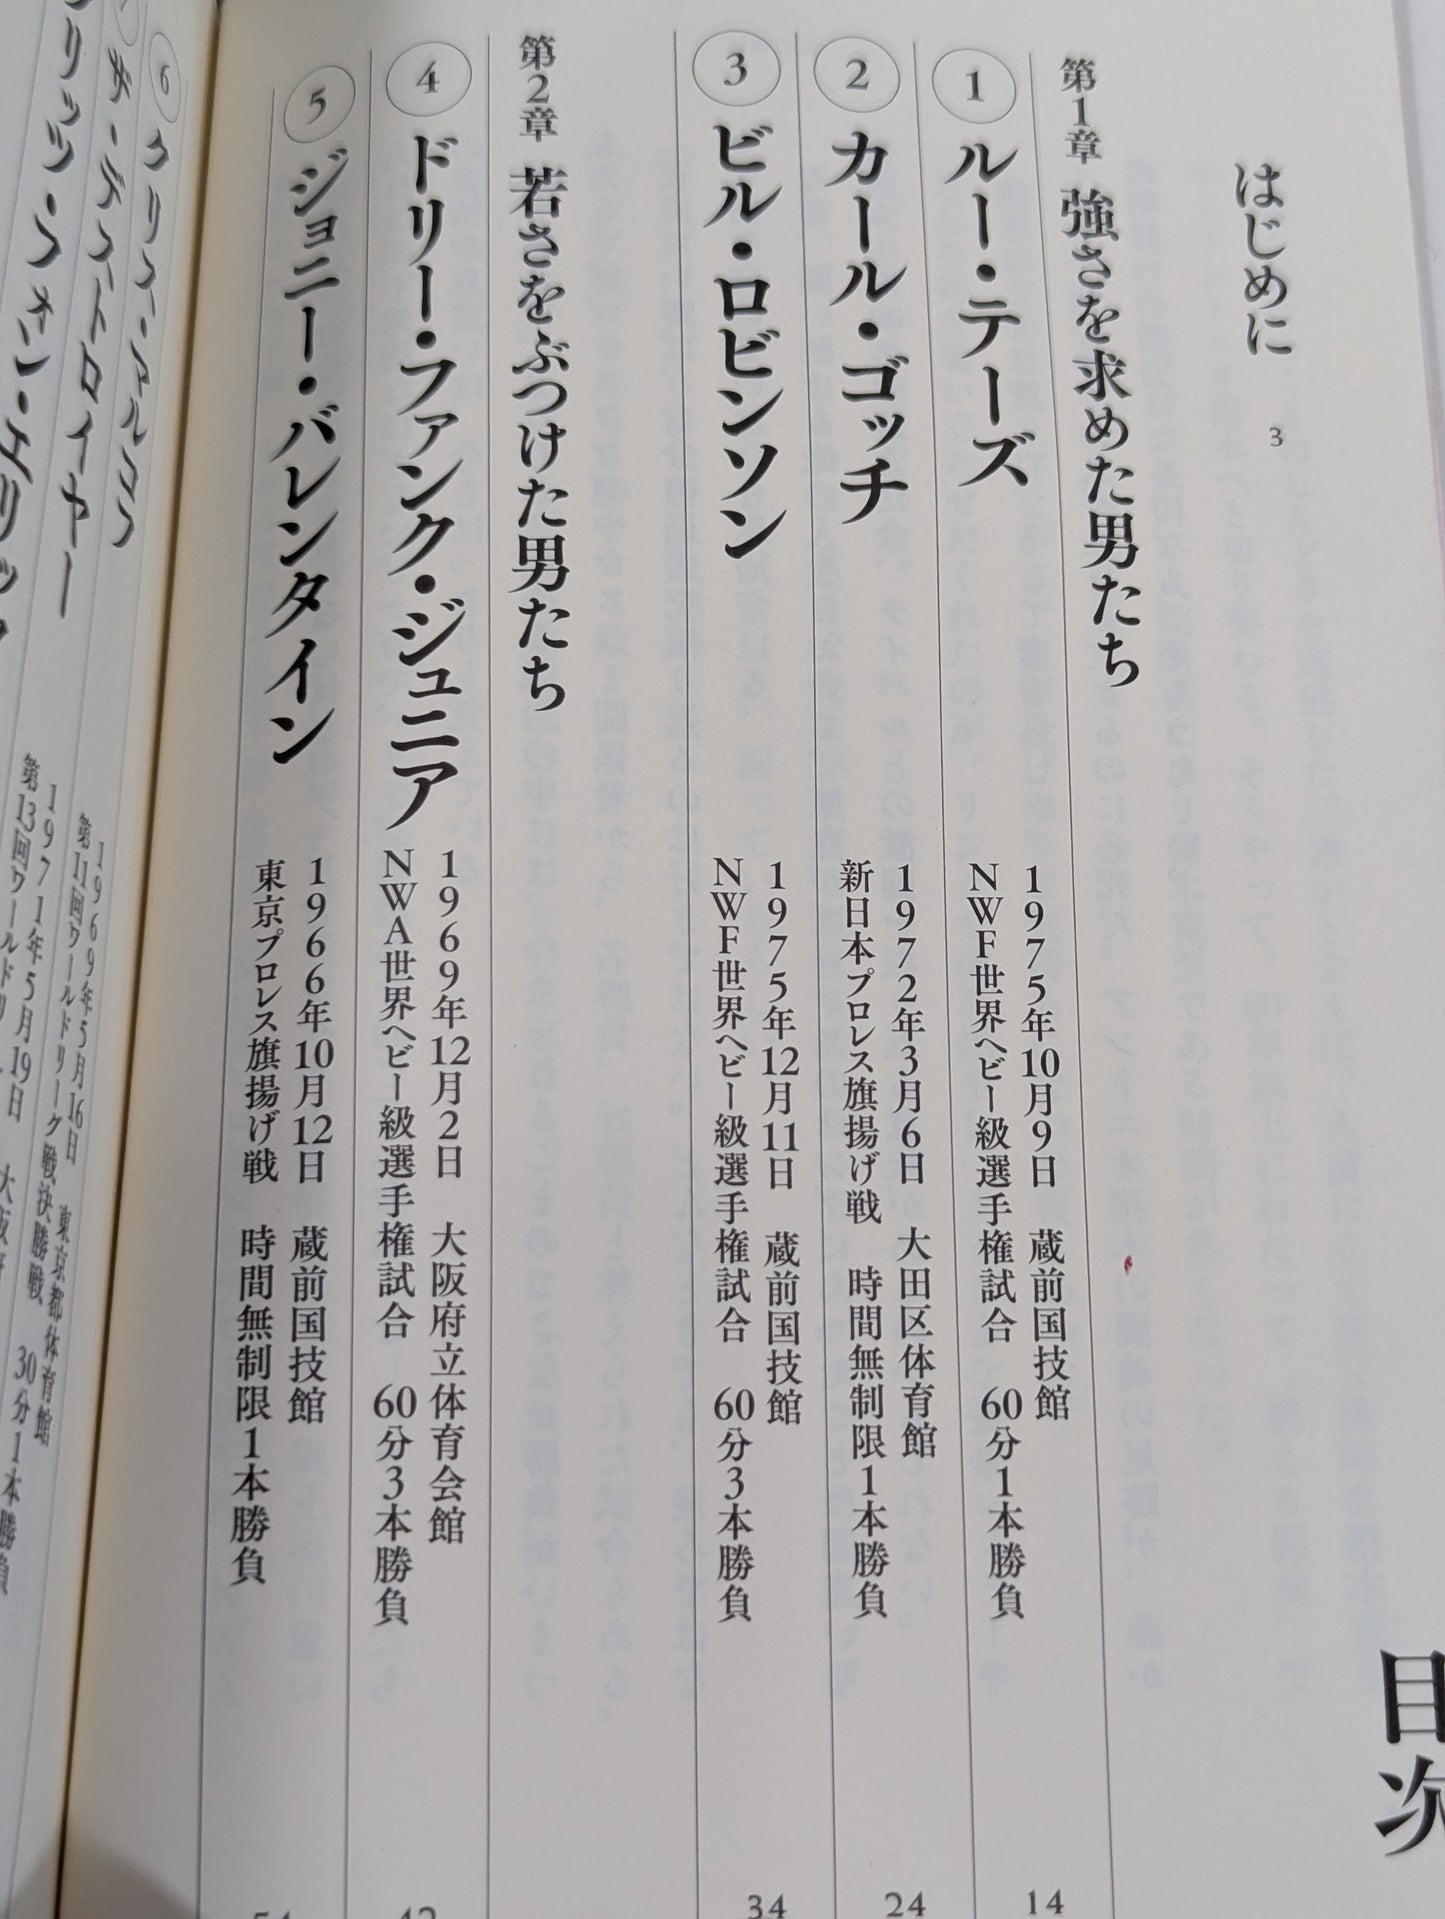 目次
はじめに 3
第1章 強さを求めた男たち
1 ルー・テーズ 1975年10月9日 蔵前国技館
NWF世界ヘビー級選手権試合 60分1本勝負 14
2 カール・ゴッチ 1972年3月6日 大田区体育館
新日本プロレス旗揚げ戦 時間無制限1本勝負 24
3 ビル・ロビンソン 1975年12月11日 蔵前国技館
NWF世界ヘビー級選手権試合 60分3本勝負 34
第2章 若さをぶつけた男たち
4 ドリー・ファンク・ジュニア 1969年12月2日 大阪府立体育会館
NWA世界ヘビー級選手権試合 60分3本勝負
5 ジョニー・バレンタイン 1966年10月12日 蔵前国技館
東京プロレス旗揚げ戦 時間無制限1本勝負
6 クリス・マルコフ 1969年5月16日 東京都体育館
第11回ワールドリーグ戦決勝戦 30分1本勝負
ザ・デストロイヤー 1971年5月19日 大阪府
第13回ワールドリ
リッツ・フォン・エリック